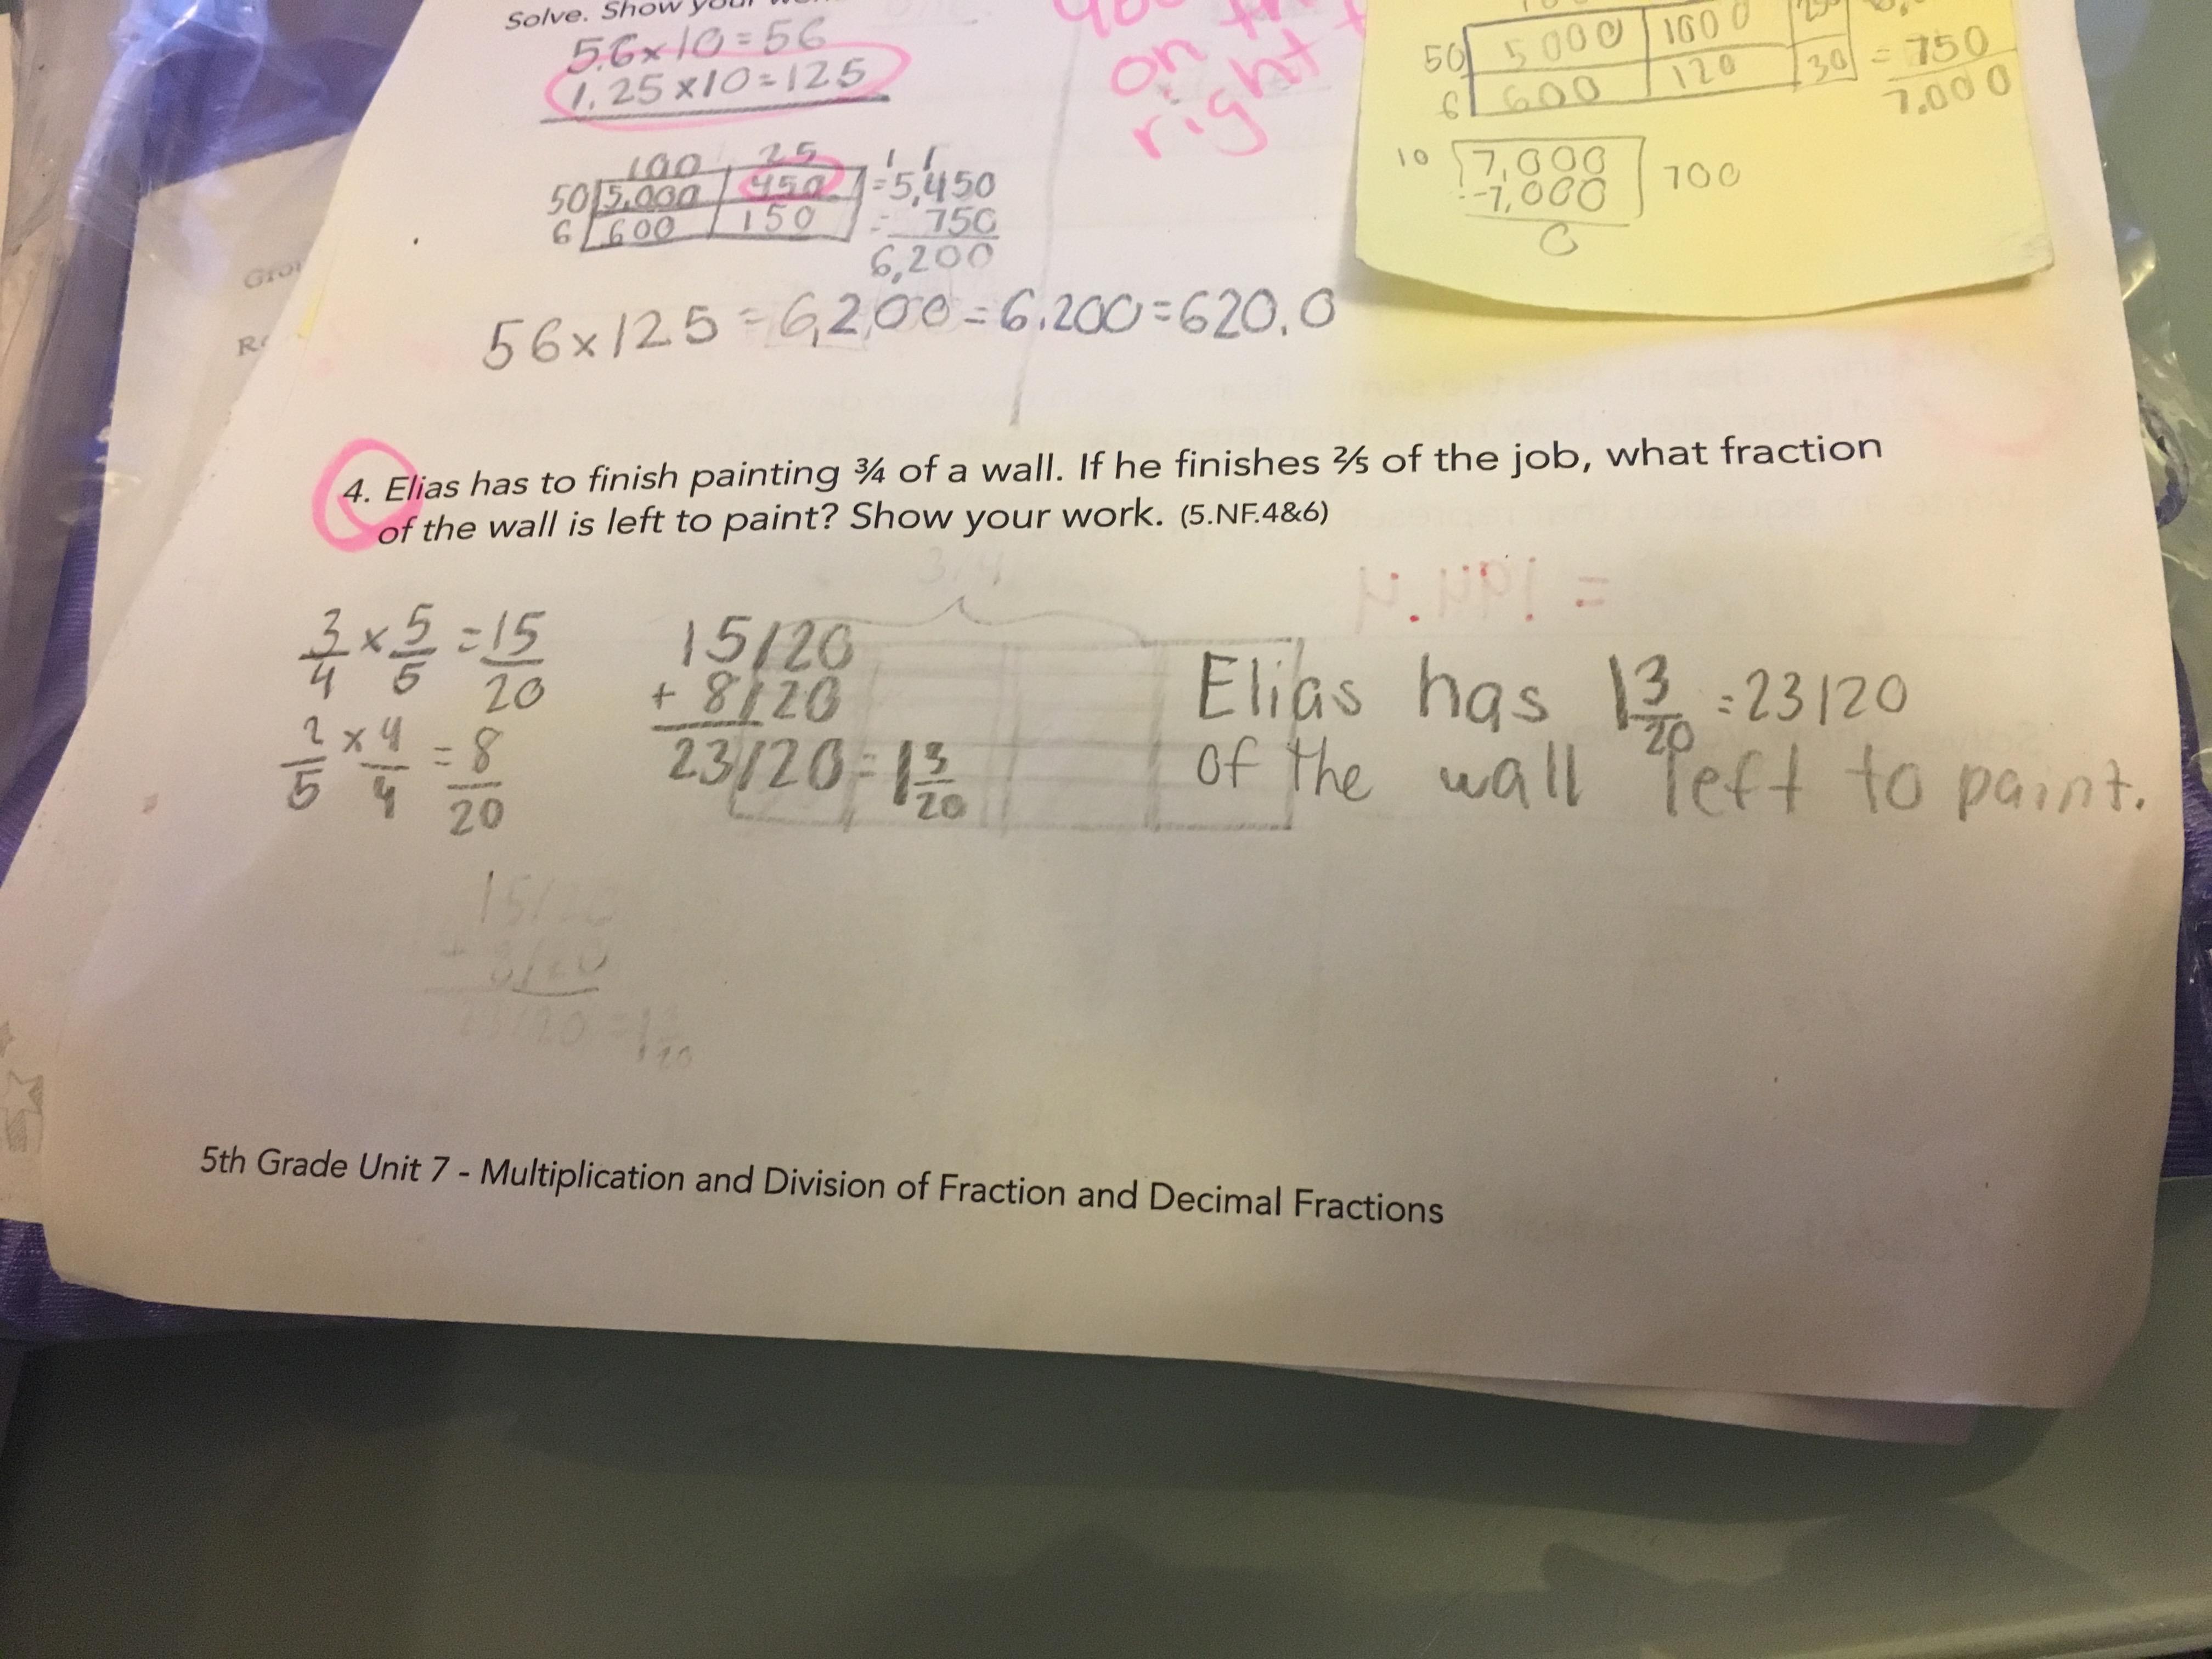 Solve. Show your
5.6x10=56
1.25x10=125
on
right
100 25
50 5,000 450 =5,450
6 600 150 = 750
6,200
56x125=6,200=6.200=620.0
50 5000 1000 = 750
6 600 120 30 7,000
10 7,000 700
-7,000
0
4. Elias has to finish painting ¾ of a wall. If he finishes ⅖ of the job, what fraction
of the wall is left to paint? Show your work. (5.NF.4&6)
3/4
3/4 x 5/5 = 15/20
2/5 x 4/4 = 8/20
15/20
+ 8/20
23/20 = 1 3/20
Elias has 1 3/20 = 23/20
of the wall left to paint.
15/20
+ 8/20
23/20 = 1 3/20
5th Grade Unit 7 - Multiplication and Division of Fraction and Decimal Fractions